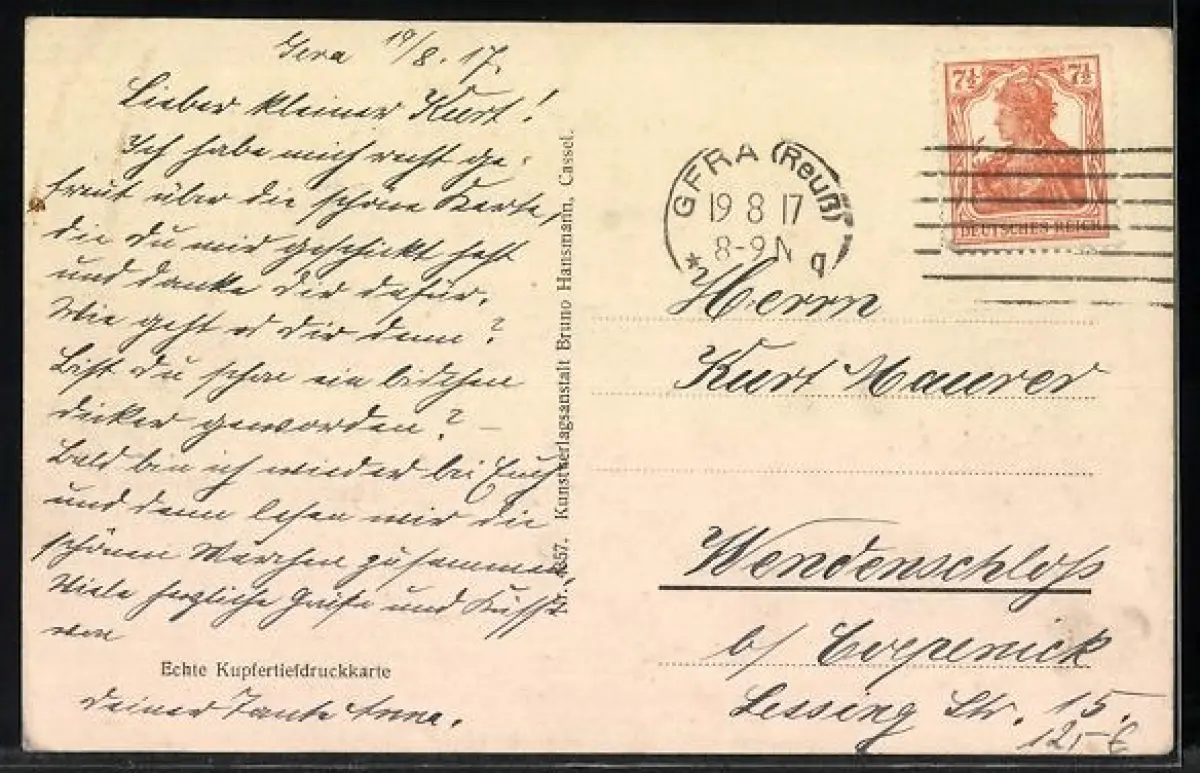 Gera 19/8.17.
Lieber kleiner Kurt!
Ich habe mich recht ge-
freut über die schöne Karte,
die Du mir geschickt hast
und danke Dir dafür.
Wie geht es Dir denn?
Bist Du schon ein bischen
dicker geworden? –
Bald bin ich wieder bei Euch
und dann lesen wir die
schönen Märchen zusammen.
Viele herzliche Grüße und Küsse
von
Echte Kupfertiefdruckkarte
Deiner Tante Anna.
Kunstverlagsanstalt Bruno Hansmann, Cassel.
7½ 7½
DEUTSCHES REICH
GERA (Reuß)
19 8 17
8-9 N
* g
Herrn
Kurt Maurer
Wendenschloß
b/ Coepenick
Lessing Str. 15.